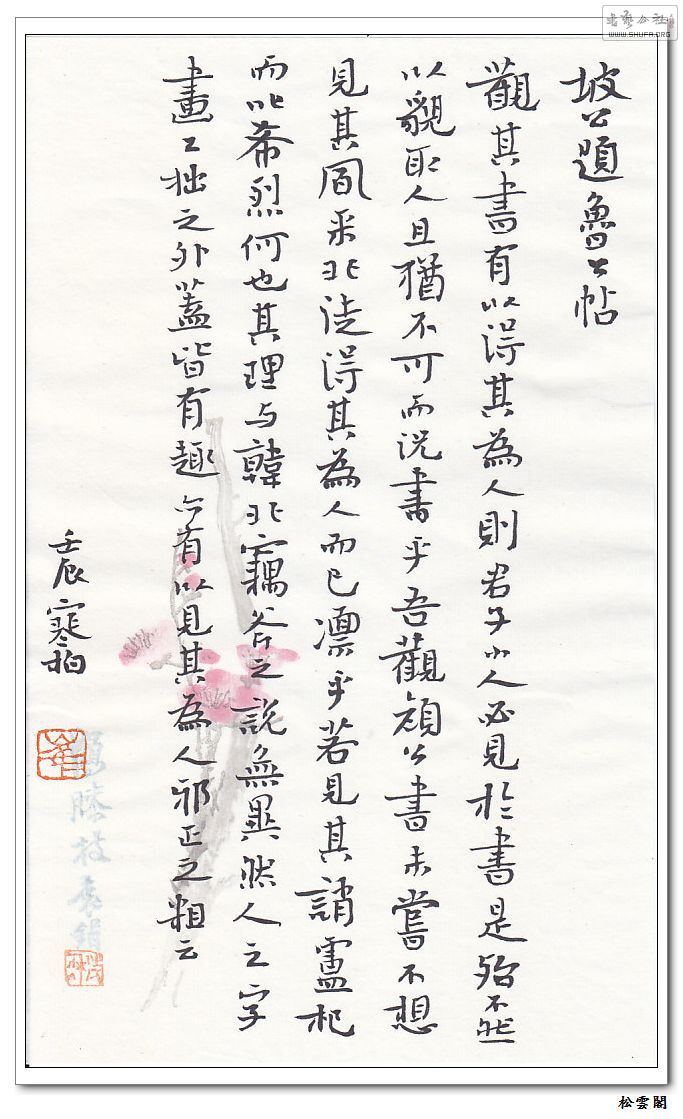 坡公題魯公帖
觀其書有以得其為人則君子小人必見於書是殆不然
以貌取人且猶不可而況書乎吾觀顏公書未嘗不想
見其風采非徒得其為人而已凛乎若見其誚盧杞
而叱希烈何也其理与韓非竊斧之説無異然人之字
畫工拙之外蓋皆有趣今有以見其為人邪正之粗云
壬辰寒柏
書藝公社
WWW.SHUFA.ORG
松雲閣